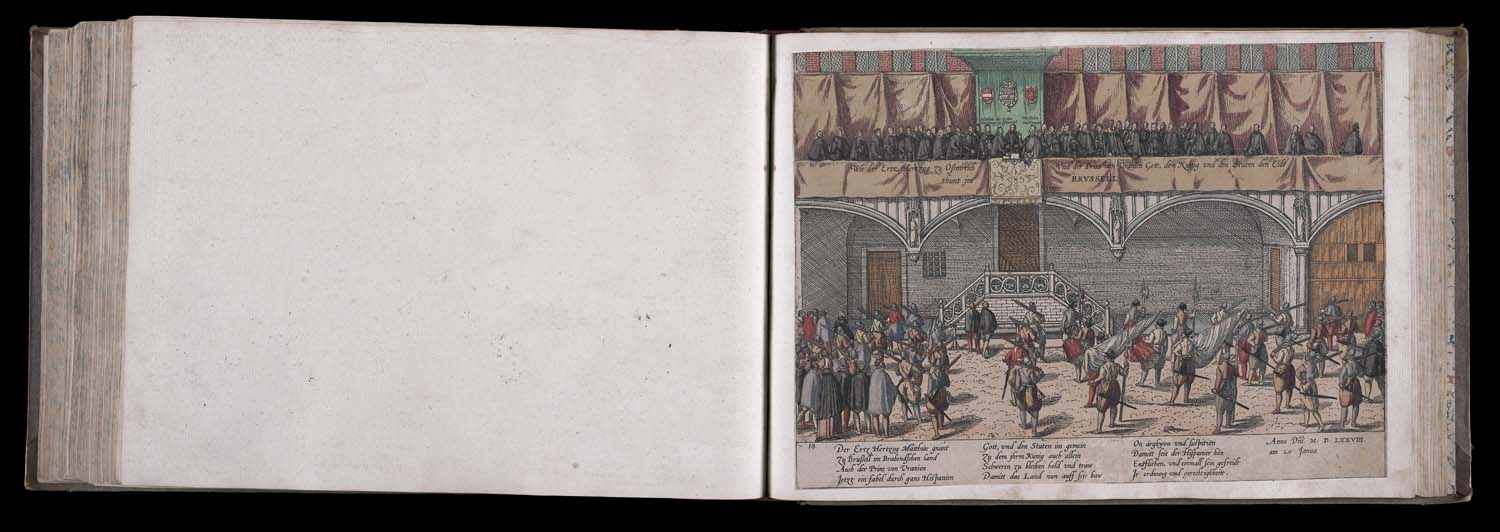 Wie der Ertzhertzog zu Ostenrich
Vnd der Prins van Uranien Gott, den Kunig vnd den Staten den Eidt
thunt zu
BRVSSELL
14
Der Ertz Hertzog Matthias gnant
Zu Brussell in Brabendschen land
Auch der Prins von Vranien
Jetzt ein fabel durch gans Hispanien
Gott, vnd den Staten in gemein
Zu dem ihrm Kunig auch allein
Schweren zu bleiben hold vnd truw
Damitt das Land nun auff sie baw
On argkwon vnd
Damitt seit der Hispanier hin
Entflohen, vnd einmall sein gefreit
Jr ordnung vnd gerechtigkeit.
Anno Dni. M. D. LXXVIII.
am 20 Janua